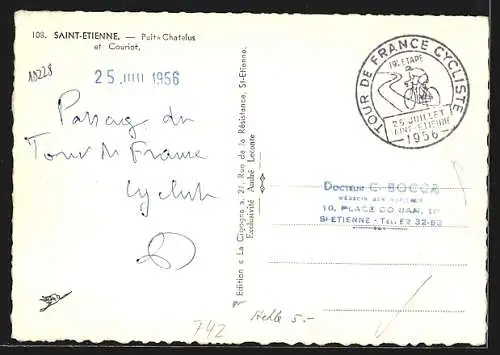 108. SAINT-ETIENNE. — Puits Chatelus
et Couriot.
18228
25 JUIL 1956
Passag du
Tour de France
cycliste
Edition « La Cigogne », 21, Rue de la Résistance, St-Etienne.
Exclusivité André Leconte
TOUR DE FRANCE CYCLISTE
19e ETAPE
25 JUILLET
SAINT-ETIENNE
1956
DOCTEUR C. BOCCA
10, PLACE DORIAN, 10
ST-ETIENNE - TÉL. E2 32-63
742
5.-